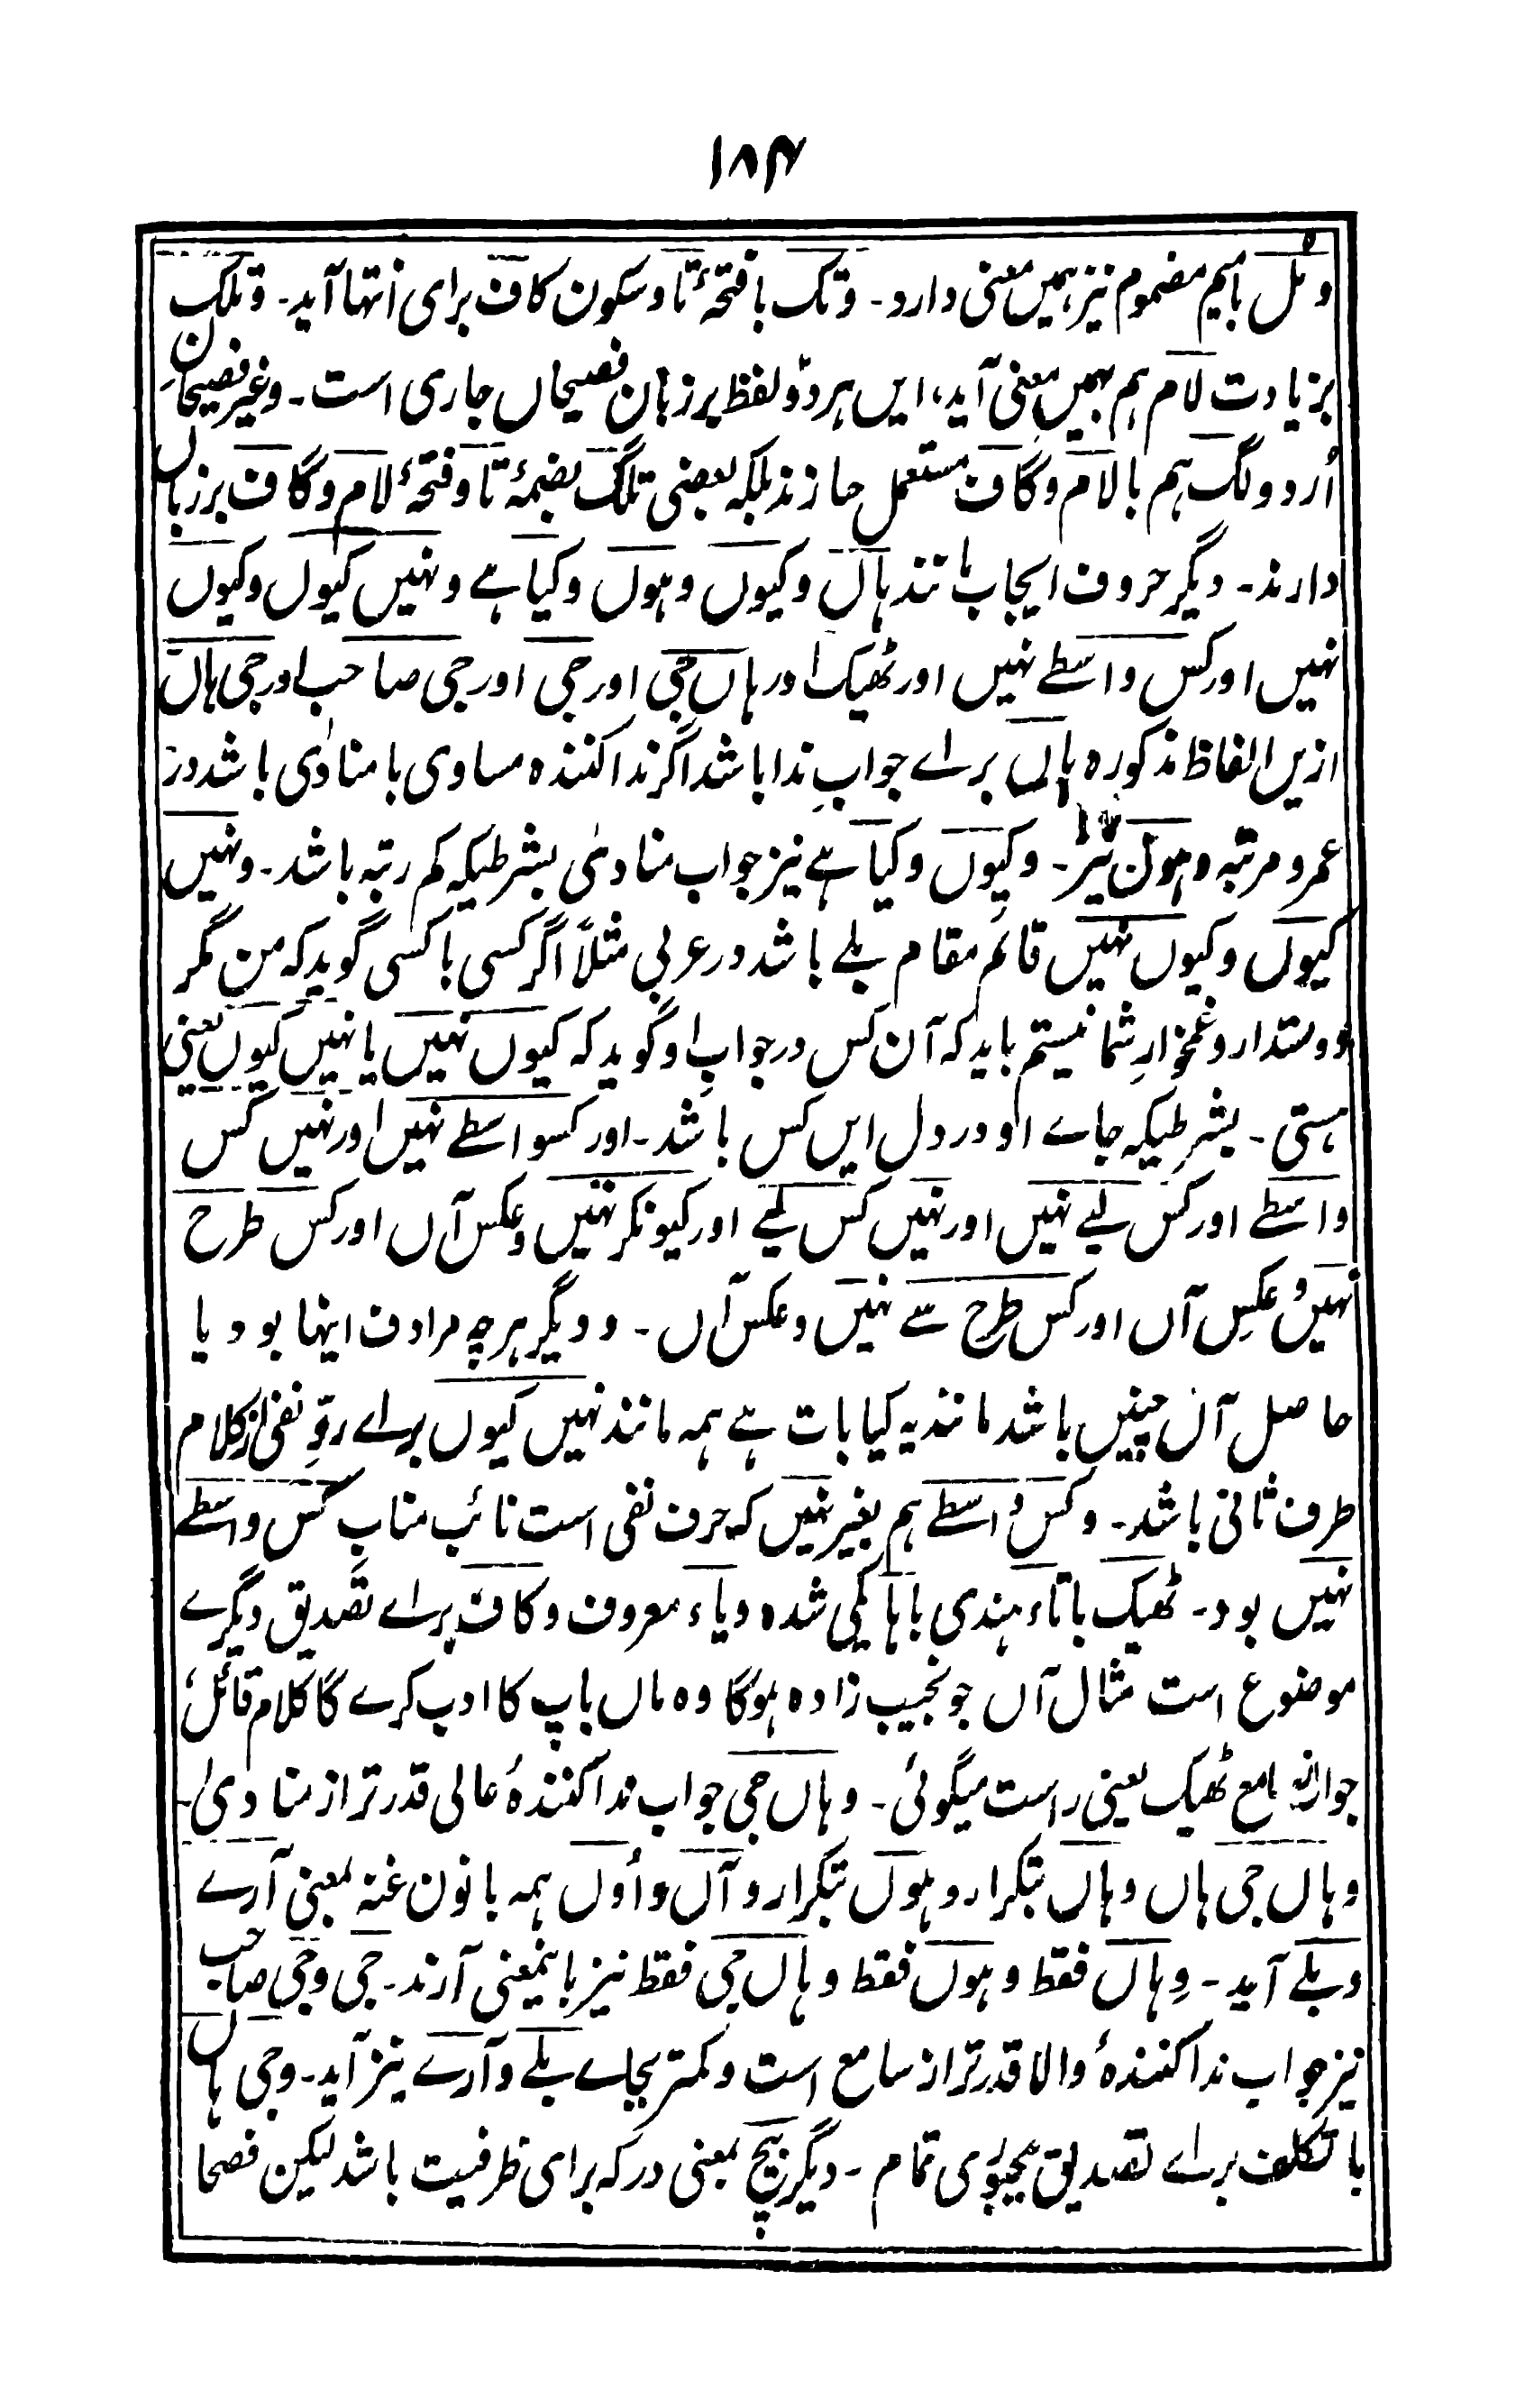 ۱۸۴
ومُل بامیم مضموم نیز ہمیں معنی دارد۔ وتک بافتحۂ تا وسکون کاف برای انتہا آید۔ وتلک
بزیادت لام ہم بہمیں معنی آید، ایں ہر دو لفظ بر زبان فصیحاں جاری است۔ وغیر فصیحان
اُردو لگ ہم بالام وگاف مستعمل سازند بلکہ بعضی تلگ بضمۂ تا وفتحۂ لام وگاف بر زباں
دارند۔ دیگر حروف ایجاب مانند ہاں وکیوں وہوں وکیا ہے ونہیں کیوں وکیوں
نہیں اور کس واسطے نہیں اور ٹھیک اور ہاں جی اور جی اور جی صاحب اور جی ہاں
ازیں الفاظ مذکورہ ہاں براے جوابِ ندا باشد اگر ندا کنندہ مساوی با منادٰی باشد در
عمر و مرتبہ وہوں نیز۔ وکیوں وکیا ہے نیز جواب منادیٰ بشرطیکہ کم رتبہ باشد۔ ونہیں
کیوں وکیوں نہیں قائم مقام بلے باشد در عربی مثلاً اگر کسی با کسی گوید کہ من مگر
دوستدار وغمخوارِ شما نیستم باید کہ آن کس در جوابِ او گوید کہ کیوں نہیں یا نہیں کیوں یعنی
ہستی۔ بشرطیکہ جاے او در دل ایں کس باشد۔ اور کسواسطے نہیں اور نہیں کس
واسطے اور کس لیے نہیں اور نہیں کس لیے اور کیونکر نہیں وعکس آں اور کس طرح
نہیں وعکسِ آں اور کس طرح سے نہیں وعکس آں۔ ودیگر ہرچہ مرادف اینہا بود یا
حاصل آن چنیں باشد مانند یہ کیا بات ہے ہمہ مانند نہیں کیوں براے ردِّ نفی از کلام
طرف ثانی باشد۔ وکس واسطے ہم بغیر نہیں کہ حرف نفی است نائب منابِ کس واسطے
نہیں بود۔ ٹھیک باتاء ہندی باہا یکی شدہ ویاء معروف وکاف براے تصدیق دیگرے
موضوع است مثال آں جو نجیب زادہ ہوگا وہ ماں باپ کا ادب کرے گا کلام قائل،
جواب سامع ٹھیک یعنی راست میگوئی۔ وہاں جی جواب ندا کنندۂ عالی قدر تر از منادیٰ۔
وہاں جی ہاں وہاں بتکرار وہوں بتکرار وآں واُوں ہمہ بانون غنہ بمعنی آرے
وبلے آید۔ وہاں فقط وہوں فقط وہاں جی فقط نیز باینمعنی آرند۔ جی وجی صاحب
نیز جواب ندا کنندۂ والا قدر تر از سامع است وکمتر بجاے بلے وآرے نیز آید۔ وجی ہاں
باتکلف براے تصدیق تمام۔ دیگر بیچ بمعنی در کہ برای ظرفیت باشد لیکن فصحا